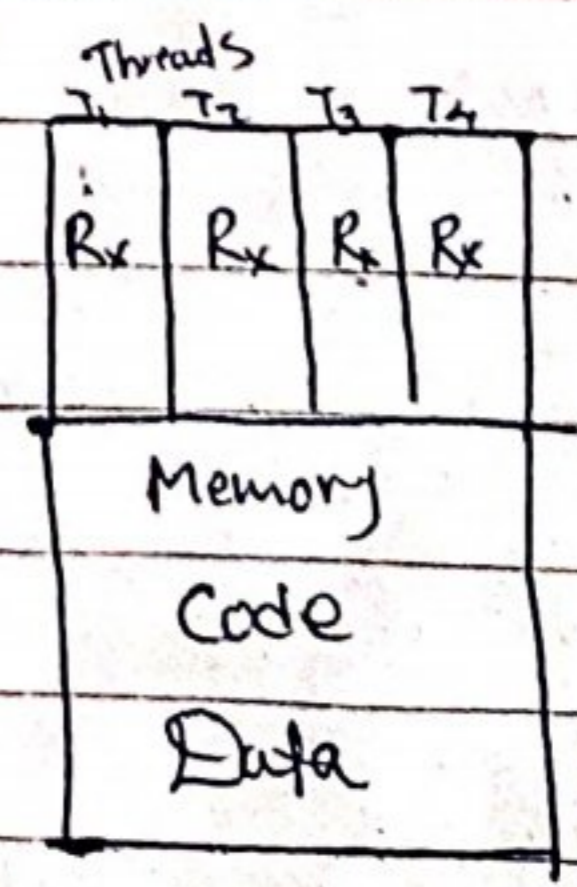 Threads
T1 T2 T3 T4
Rx Rx Rx Rx
Memory
Code
Data